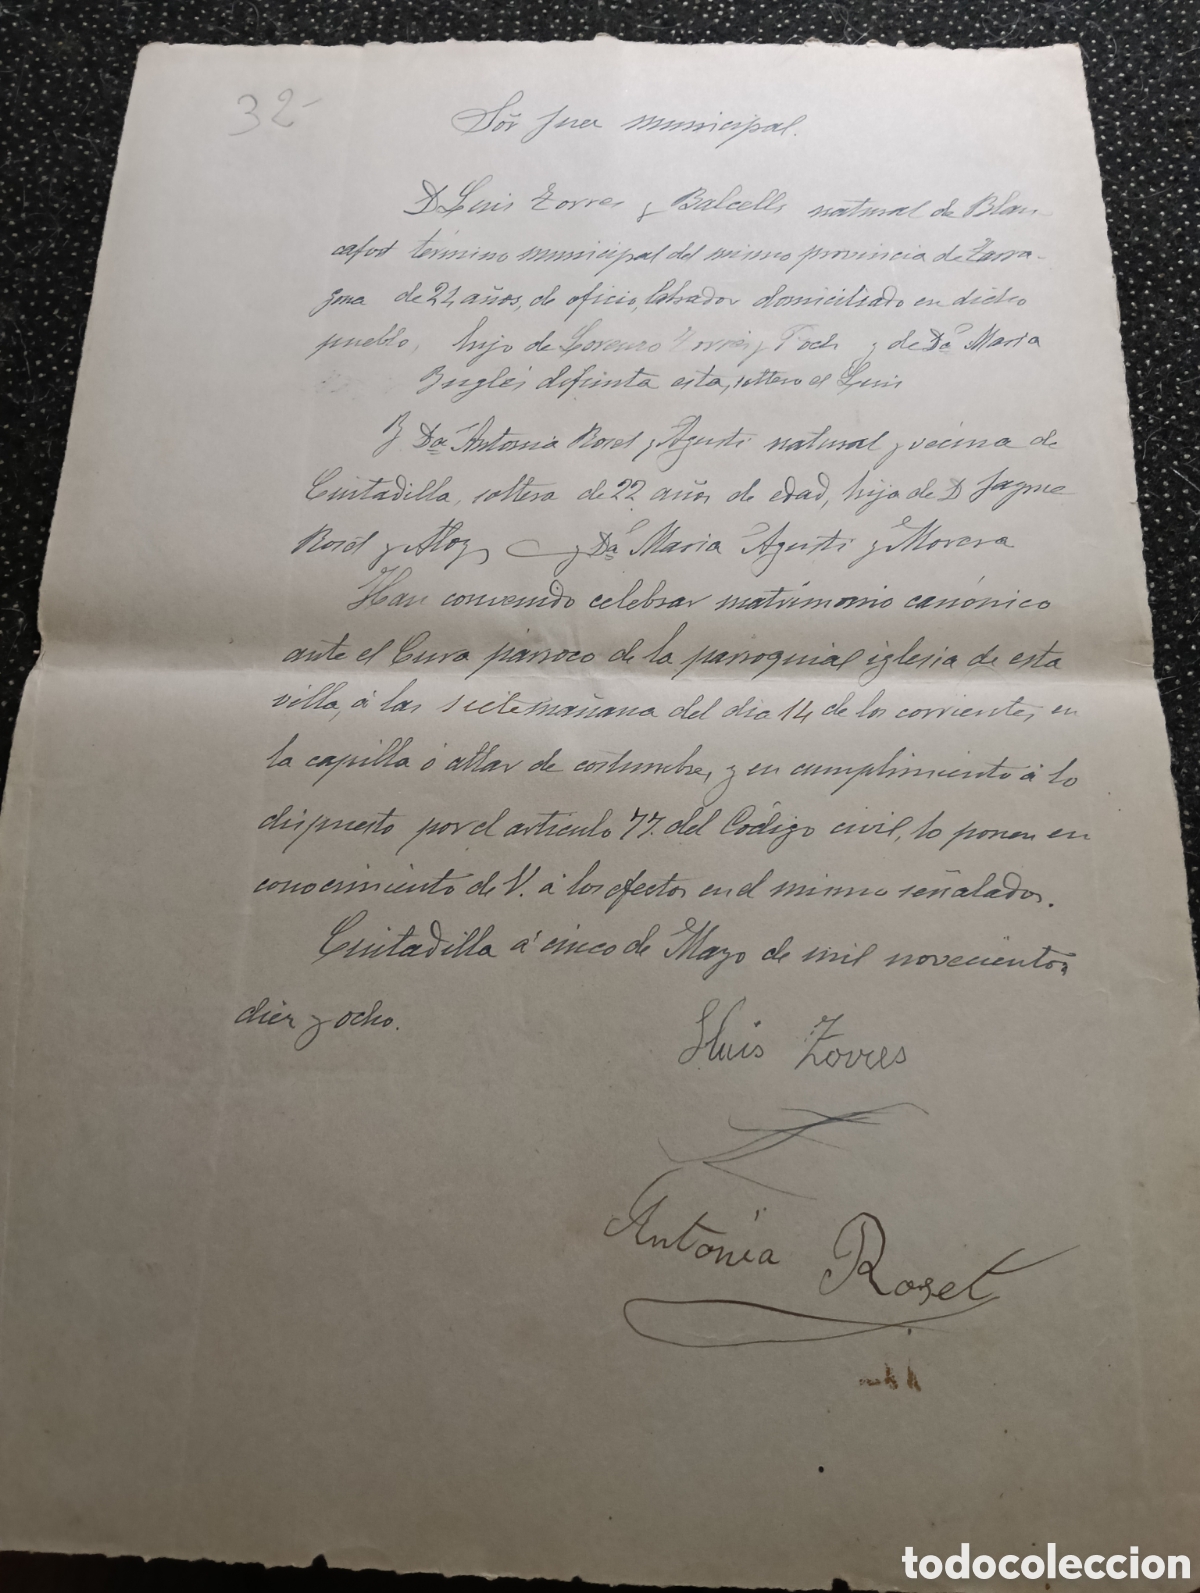 32-
Sor Juez municipal.
D Luis Torres y Balcells natural de Blan-
cafort término municipal del mismo provincia de Tarra-
gona de 22 años, de oficio, labrador domiciliado en dicho
pueblo, hijo de Lorenzo Torres y Foch y de Da Maria
difunta esta, soltero el Luis
Y Da Antonia Roset y Agusti natural y vecina de
Ciutadilla, soltera de 22 años de edad, hija de D Jayme
Roset y Aloy y Da Maria Agusti y Morera
Han convenido celebrar matrimonio canónico
ante el Cura párroco de la parroquial iglesia de esta
villa, á las siete mañana del dia 14 de los corrientes, en
la capilla ó altar de costumbre, y en cumplimiento á lo
dispuesto por el articulo 77. del Código civil, lo ponen en
conocimiento de V. á los efectos en el mismo señalados.
Ciutadilla á cinco de Mayo de mil novecientos
diez y ocho.
Lluis Torres
Antónia Roset
todocoleccion